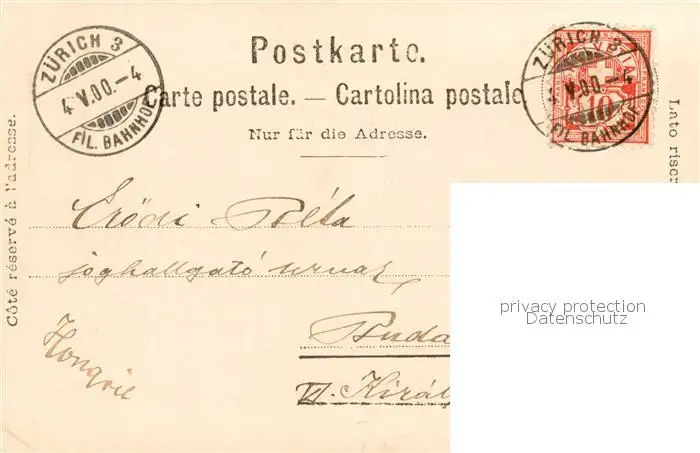 ZÜRICH 3
4.V.00.–4
FIL. BAHNHOF
Postkarte.
Carte postale. — Cartolina postale
Nur für die Adresse.
ZÜRICH 3
4.V.00.–4
FIL. BAHNHOF
10
Côté réservé à l'adresse.
Lato riser
Erődi Béla
joghallgató urnak
Buda
Hongrie
VI. Király
privacy protection
Datenschutz